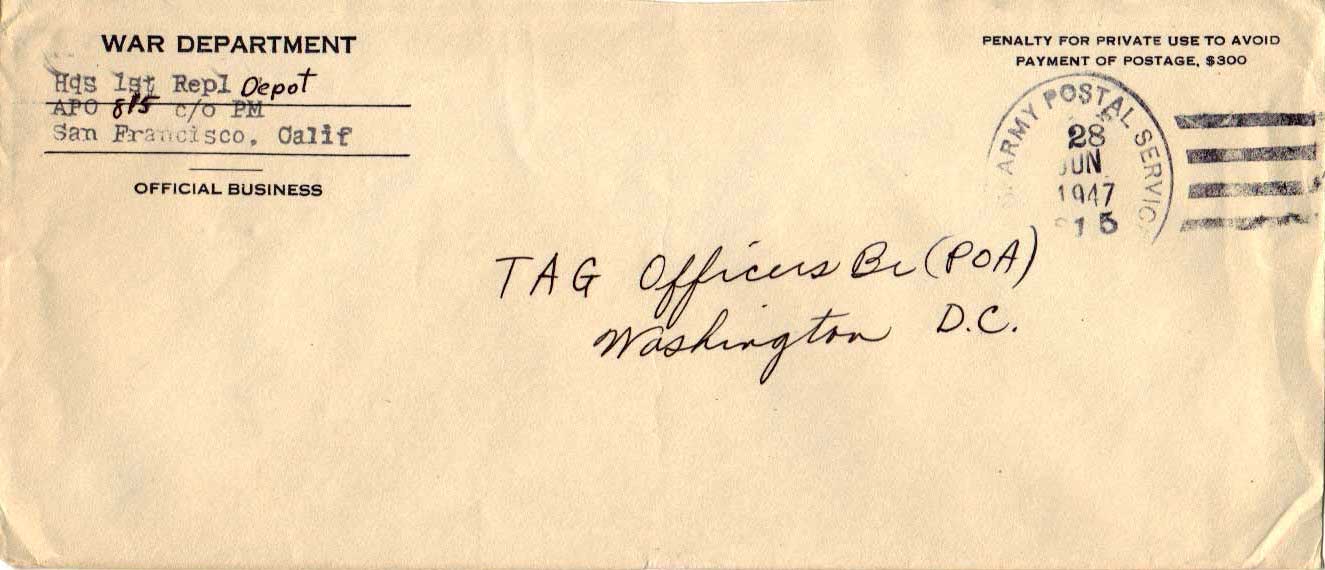 WAR DEPARTMENT
Hqs 1st Repl Depot
APO 815 c/o PM
San Francisco, Calif
OFFICIAL BUSINESS
PENALTY FOR PRIVATE USE TO AVOID
PAYMENT OF POSTAGE, $300
ARMY POSTAL SERVIC
28
JUN
1947
15
TAG Officers Br (POA)
Washington D.C.